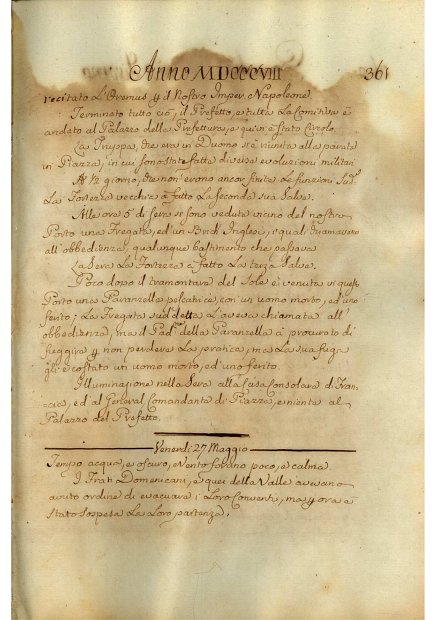 Anno MDCCCVIII 361
recitato L'Oremus p il Nostro Imper. Napoleone.
Terminato tutto ciò, il Prefetto, e tutta La Comitiva è
andato al Palazzo della Prefettura, e qui n'è stato Circolo.
La Truppa, che era in Duomo s'è riunita alla parata
in Piazza, in cui sono state fatte diverse evoluzioni militari
A ½ giorno, che non erano ancor finite Le funzioni Sud.e
La Fortezza vecchia à fatto La seconda sua Salva.
Alla ora 6 di sera si sono vedute vicino del nostro
Porto una Fregata, ed un Brick Inglesi, i quali chiamavano
all'obbedienza, qualunque bastimento che passava
La Sera La Fortezza à fatto La terza Salva.
Poco dopo il tramontare del Sole è venuta in questo
Porto una Paranzella pescatrice, con un uomo morto, ed uno
ferito; La Fregata sud.detta L'aveva chiamata all'
obbedienza, ma il Pad.ne della Paranzella à procurato di
fuggire p non perdere La pratica, ma La sua fuga
gli è costato un uomo morto, ed uno ferito.
Illuminazione nella Sera alla Casa Consolare di Fran-
cia, ed al General Comandante di Piazza, e niente al
Palazzo del Prefetto.
Venerdi 27 Maggio
Tempo acqua, e oscuro, e Vento forano poco, e calma
I Frati Domenicani, e quei della Valle avevano
avuto ordine di evacuare i Loro Conventi, ma p ora è
stato sospesa La Loro partenza.